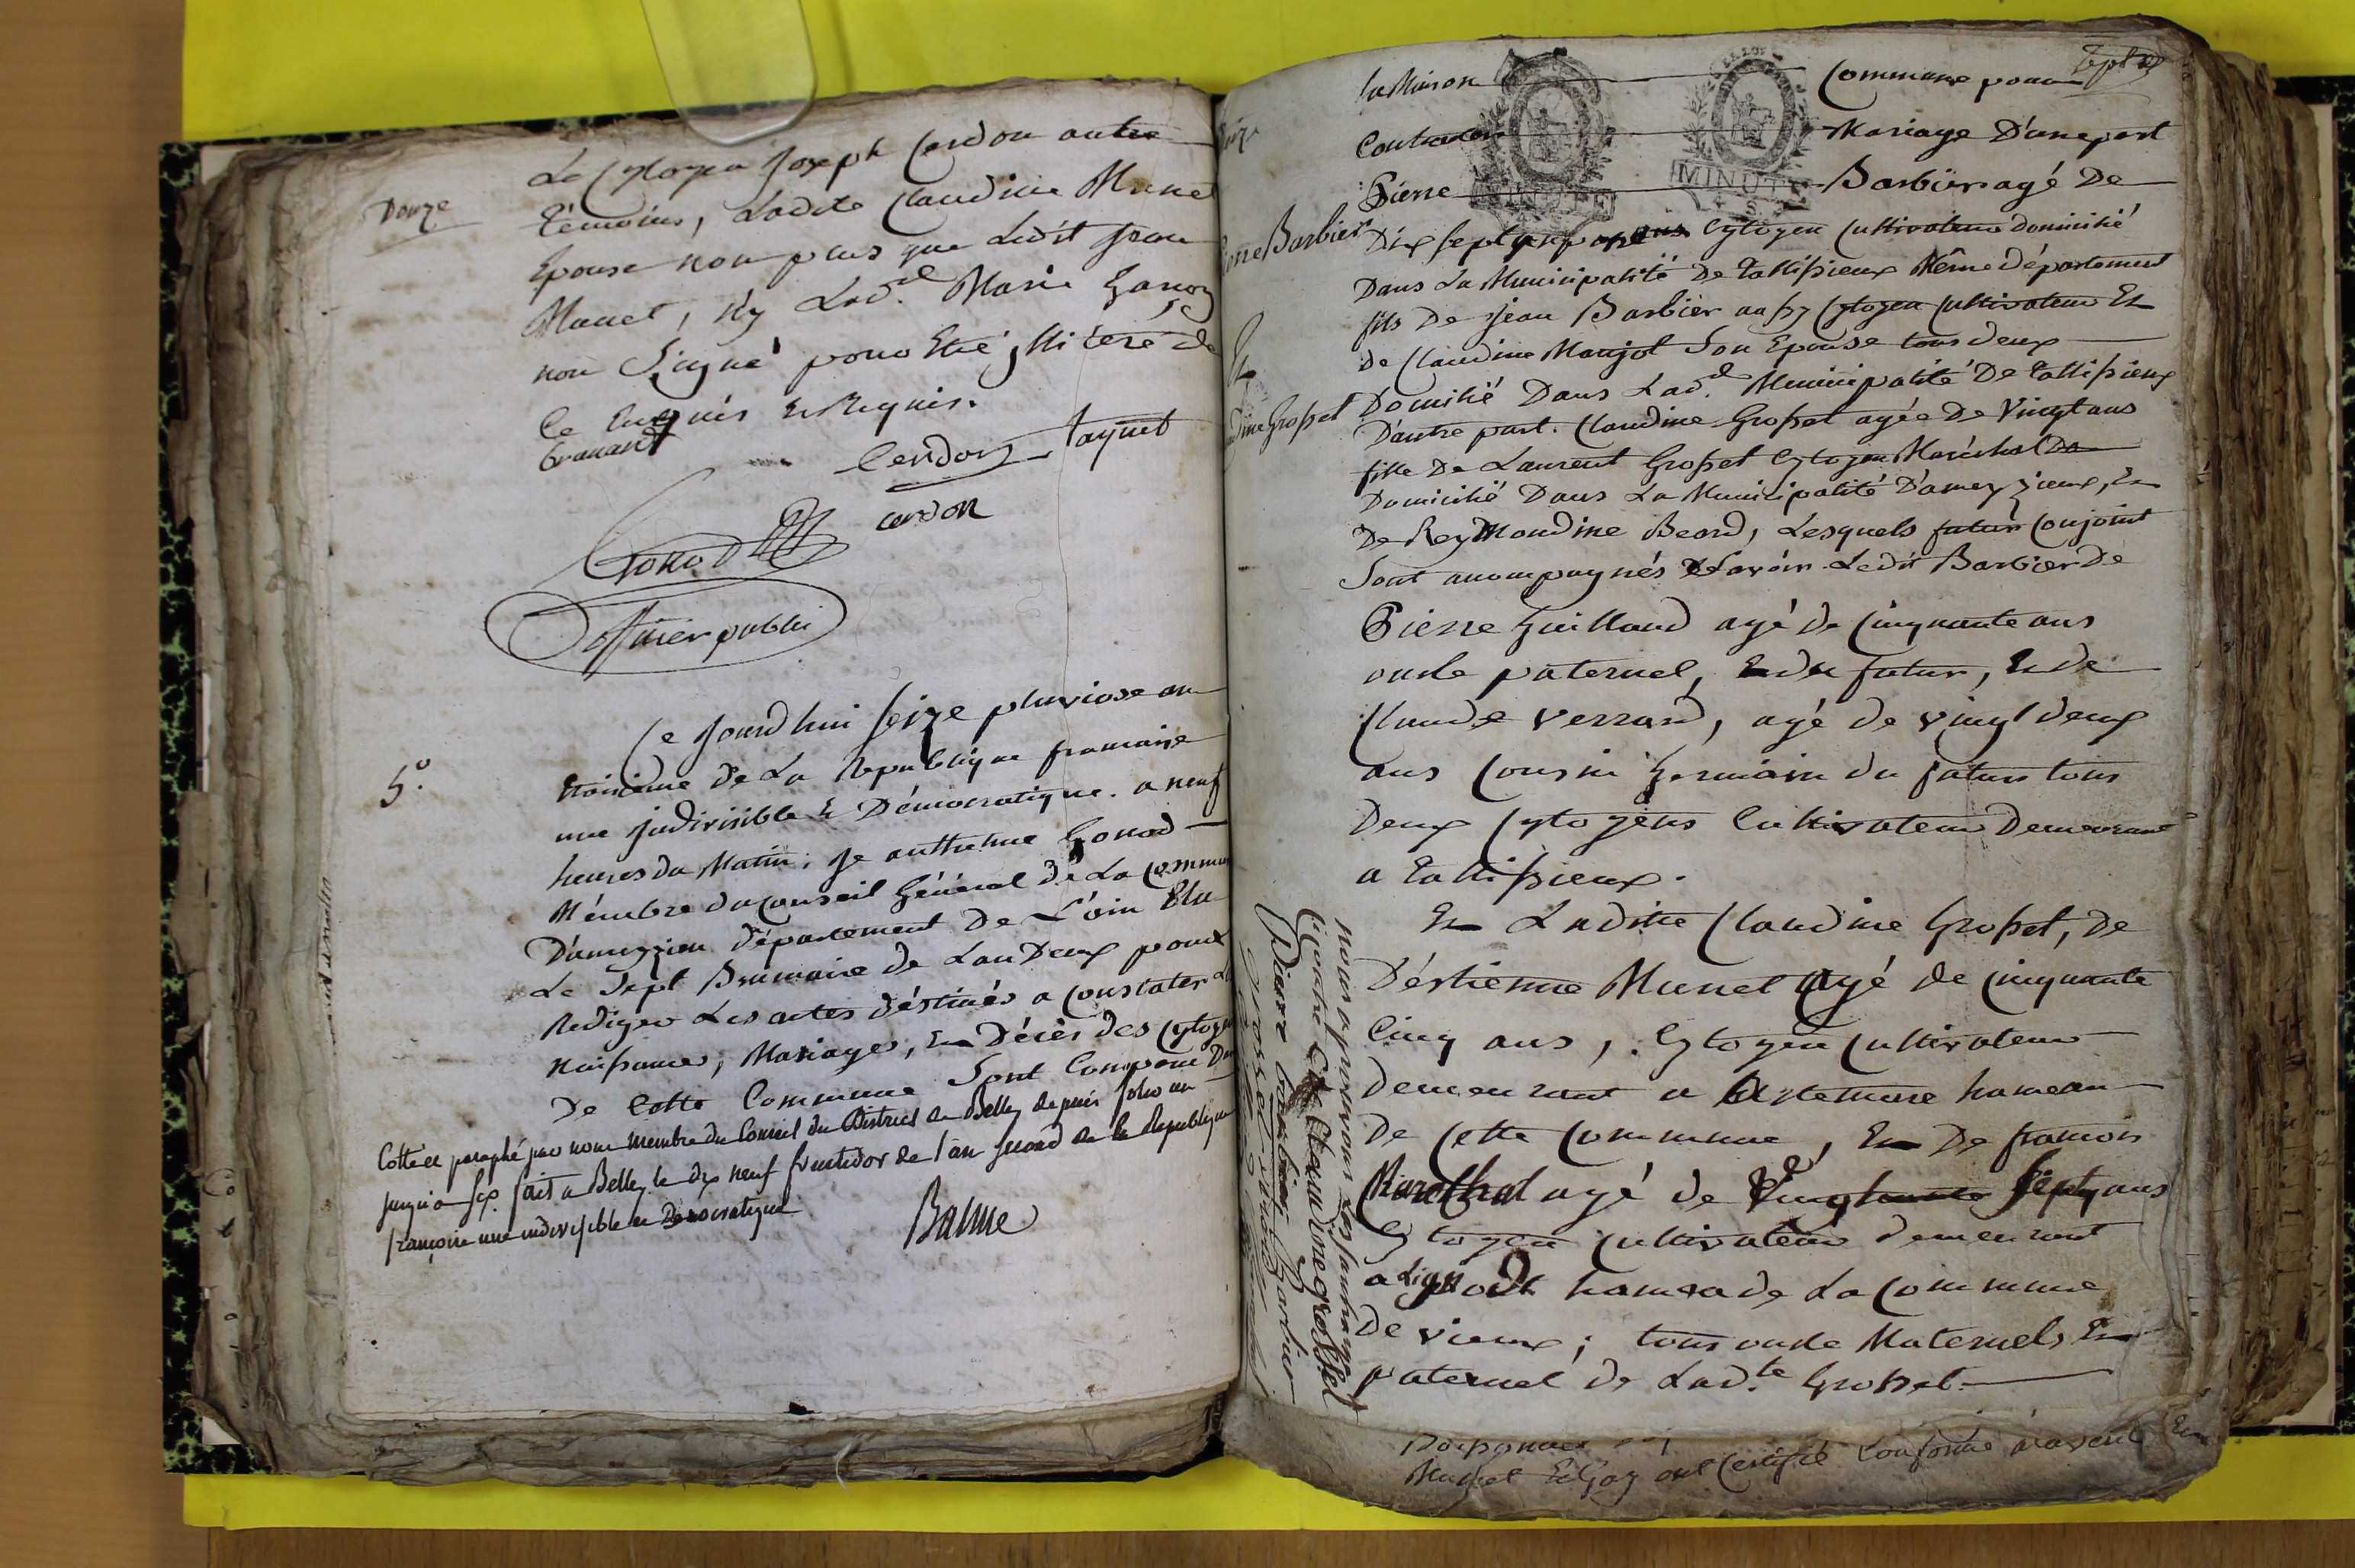 Douze
Le Cytoyen Joseph Cerdon autre
témoins, Ladite Claudine Munet
Epouse non plus que Ledit Jean
Munet, Ny Lad.e Marie
non Signé pour Etre jllitéré de
ce Enquis Et Requis.
Cerdon
Cerdon
Gonod
officier public
5°.
Ce Jourd'hui Seize pluviose an
troisième de La Republique francaise
une Judivisible Et Démocratique. a neuf
heures du Matin; Je anthelme Gonod
Mémbre du Conseil Général de La Commune
Département De L'ain Elu
Le Sept Brumaire de Lan Deux pour
Rediger Les actes déstinés a Constater
Naissances, Mariages, Et Décès des Cytoyens
De Cette Commune Sont Comparu Dans
Cotté et paraphé par nous Membre du Conseil du District de Belley depuis folio un
jusqu'a Six. fait a Belley le dix neuf fructidor de l'an second de la Republique
françoise une indivisible et Démocratique
Balme
la Maison Commune pour
Contracter Mariage D'une part
MINUTE
MINUTE
Pierre Barbier agé De
Pierre Barbier
Dix Sept ans Cytoyen Cultivateur Domicilié
Dans La Municipalité De tallissieux Même département
fils De Jean Barbier aussy Cytoyen Cultivateur Et
De Claudine Manjot Son Epouse tous deux
Et
Domicilié Dans Lad.e Municipalité De tallissieux
Claudine Grosset
D'autre part. Claudine Grosset agée De Vingt ans
fille De Laurent Grosset Cytoyen Maréchal Do
Domicilié Dans La Municipalité D'ameyzieux, Et
De Reymondine Beard, Lesquels futur Conjoint
Sont accompagnés Savoir Ledit Barbier De
Pierre Guilland agé de Cinquante ans
oncle paternel, du futur, Et de
Claude Verrard, agé de vingt deux
ans Cousin Germain du futur tous
Deux Cytoyens Cultivateur Demeurant
a tallissieux.
Et Ladite Claudine Grosset, De
D'éstienne Munet Agé de Cinquante
Cinq ans, Cytoyen Cultivateur
demeurant a hameau
De Cette Commune, Et De francois
Marethal agé de Septy ans
Cytoyen Cultivateur demeurant
a Lignod hameade La Commune
De vieux; tous oncle Maternels Et
paternel de Lad.te Grosset.
nous approuvons Les
Claudine grosset
Pierre barbier Barbier
Munet ont Certifié Conforme